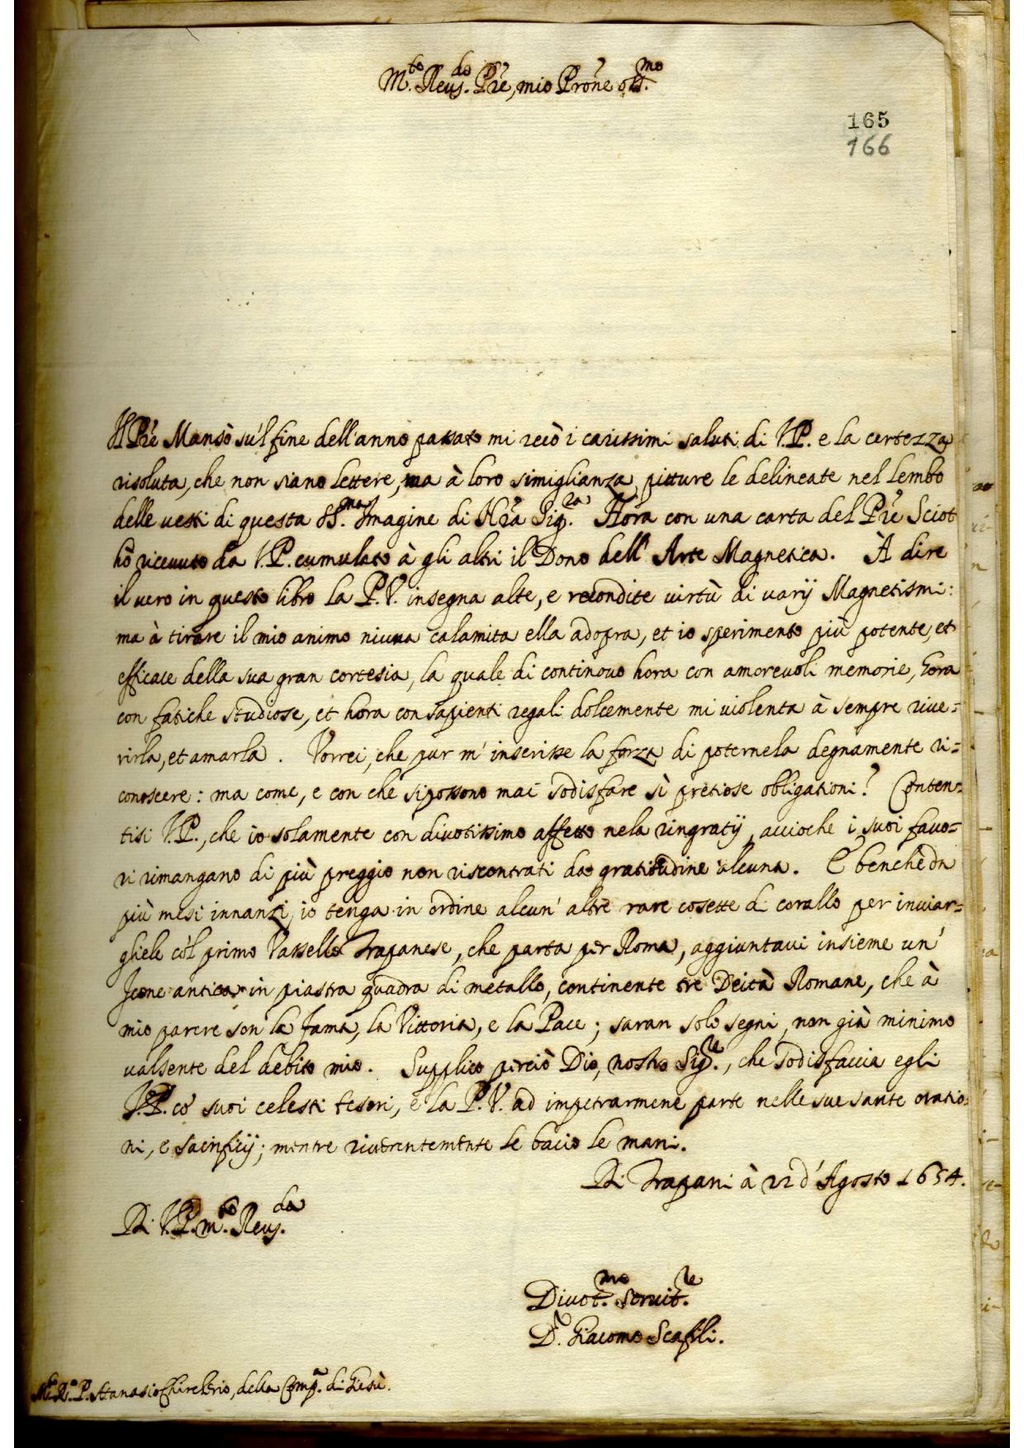 M.to Reu.do Pre, mio Prōne oss.mo
165
166
Il Pre Mansò su'l fine dell'anno passato mi recò i carissimi saluti di V.P. e la certezza
risoluta, che non siano lettere, ma à loro simiglianza pitture le delineate nel lembo
delle vesti di questa SS.ma Imagine di Nra Sig.ra Hora con una carta del Pre Sciot
hò ricevuto da V.P. cumulato à gli altri il Dono dell'Arte Magnetica. À dire
il vero in questo libro la P.V. insegna alte, e recondite virtù di varij Magnetismi:
ma à tirare il mio animo niuna calamita ella adopra, et io sperimento più potente, et
efficace della sua gran cortesia, la quale di continouo hora con amorevoli memorie, hora
con fatiche studiose, et hora con sapienti regali dolcemente mi violenta à sempre rive=
rirla, et amarla. Vorrei, che pur m'inserisse la forza di poternela degnamente ri=
conoscere: ma come, e con che si possono mai sodisfare sì pretiose obligationi? Conten=
tisi V.P., che io solamente con divotissimo affetto nela ringratij, accioche i suoi favo=
ri rimangano di più preggio non riscontrati da gratitudine alcuna. E benche da
più mesi innanzi, io tenga in ordine alcun'altre rare cosette di corallo per inviar=
gliele cól primo Vassello Trapanese, che parta per Roma, aggiuntavi insieme un'
Icone antica in piastra quadra di metallo, continente tre Deità Romane, che à
mio parere son la Fama, la Vittoria, e la Pace; saran solo segni, non già minimo
valsente del debito mio. Supplico perciò Dio, nostro Sig.re, che sodisfaccia egli
V.P. co' suoi celesti tesori, e la P.V. ad impetrarmene parte nelle sue sante oratio=
ni, e sacrificij; mentre riverentemente le bacio le mani.
Di Trapani à 22 d'Agosto 1654.
Di V.P. m.to Reu.da
Divot.mo Servit.re
D. Giacomo Scafili.
M.to R.do P. Atanasio Chircherio, della Comp.a di Giesù.